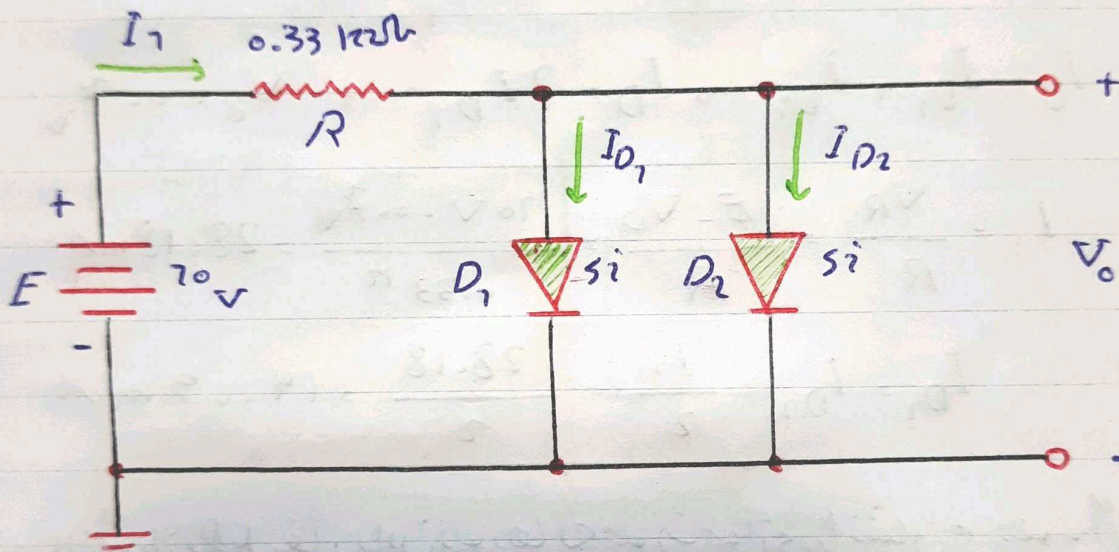 I₁ 0.33 kΩ
R
+
I_D₁
I_D₂
+
E 10 V
-
D₁ Si
D₂ Si
V₀
-